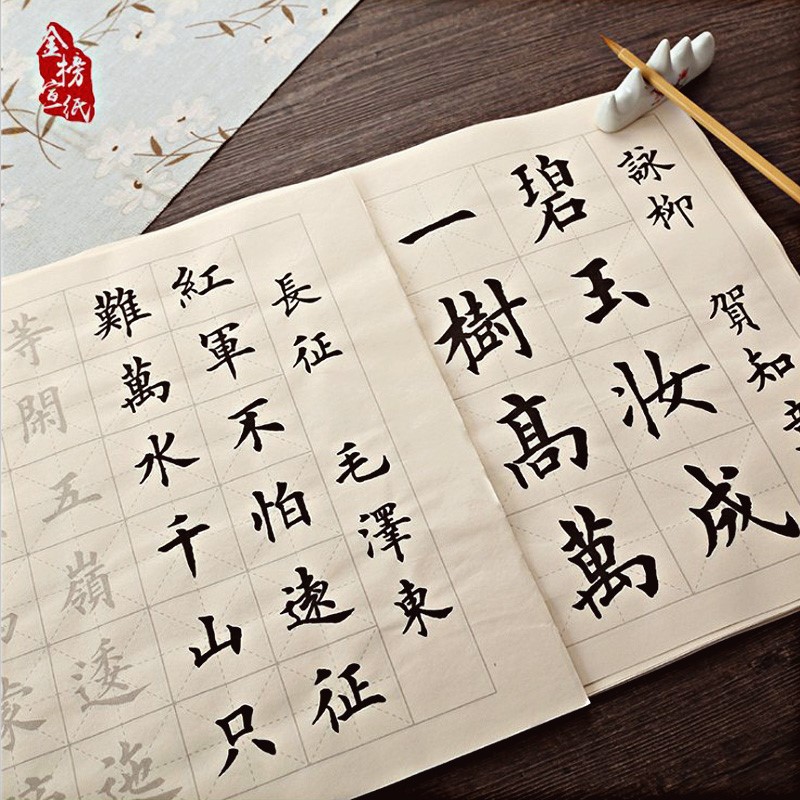 金榜
宣纸
詠柳 賀知
碧玉妝成
一樹髙萬
長征 毛澤東
紅軍不怕遠征
難萬水千山只
等閑五嶺逶迤